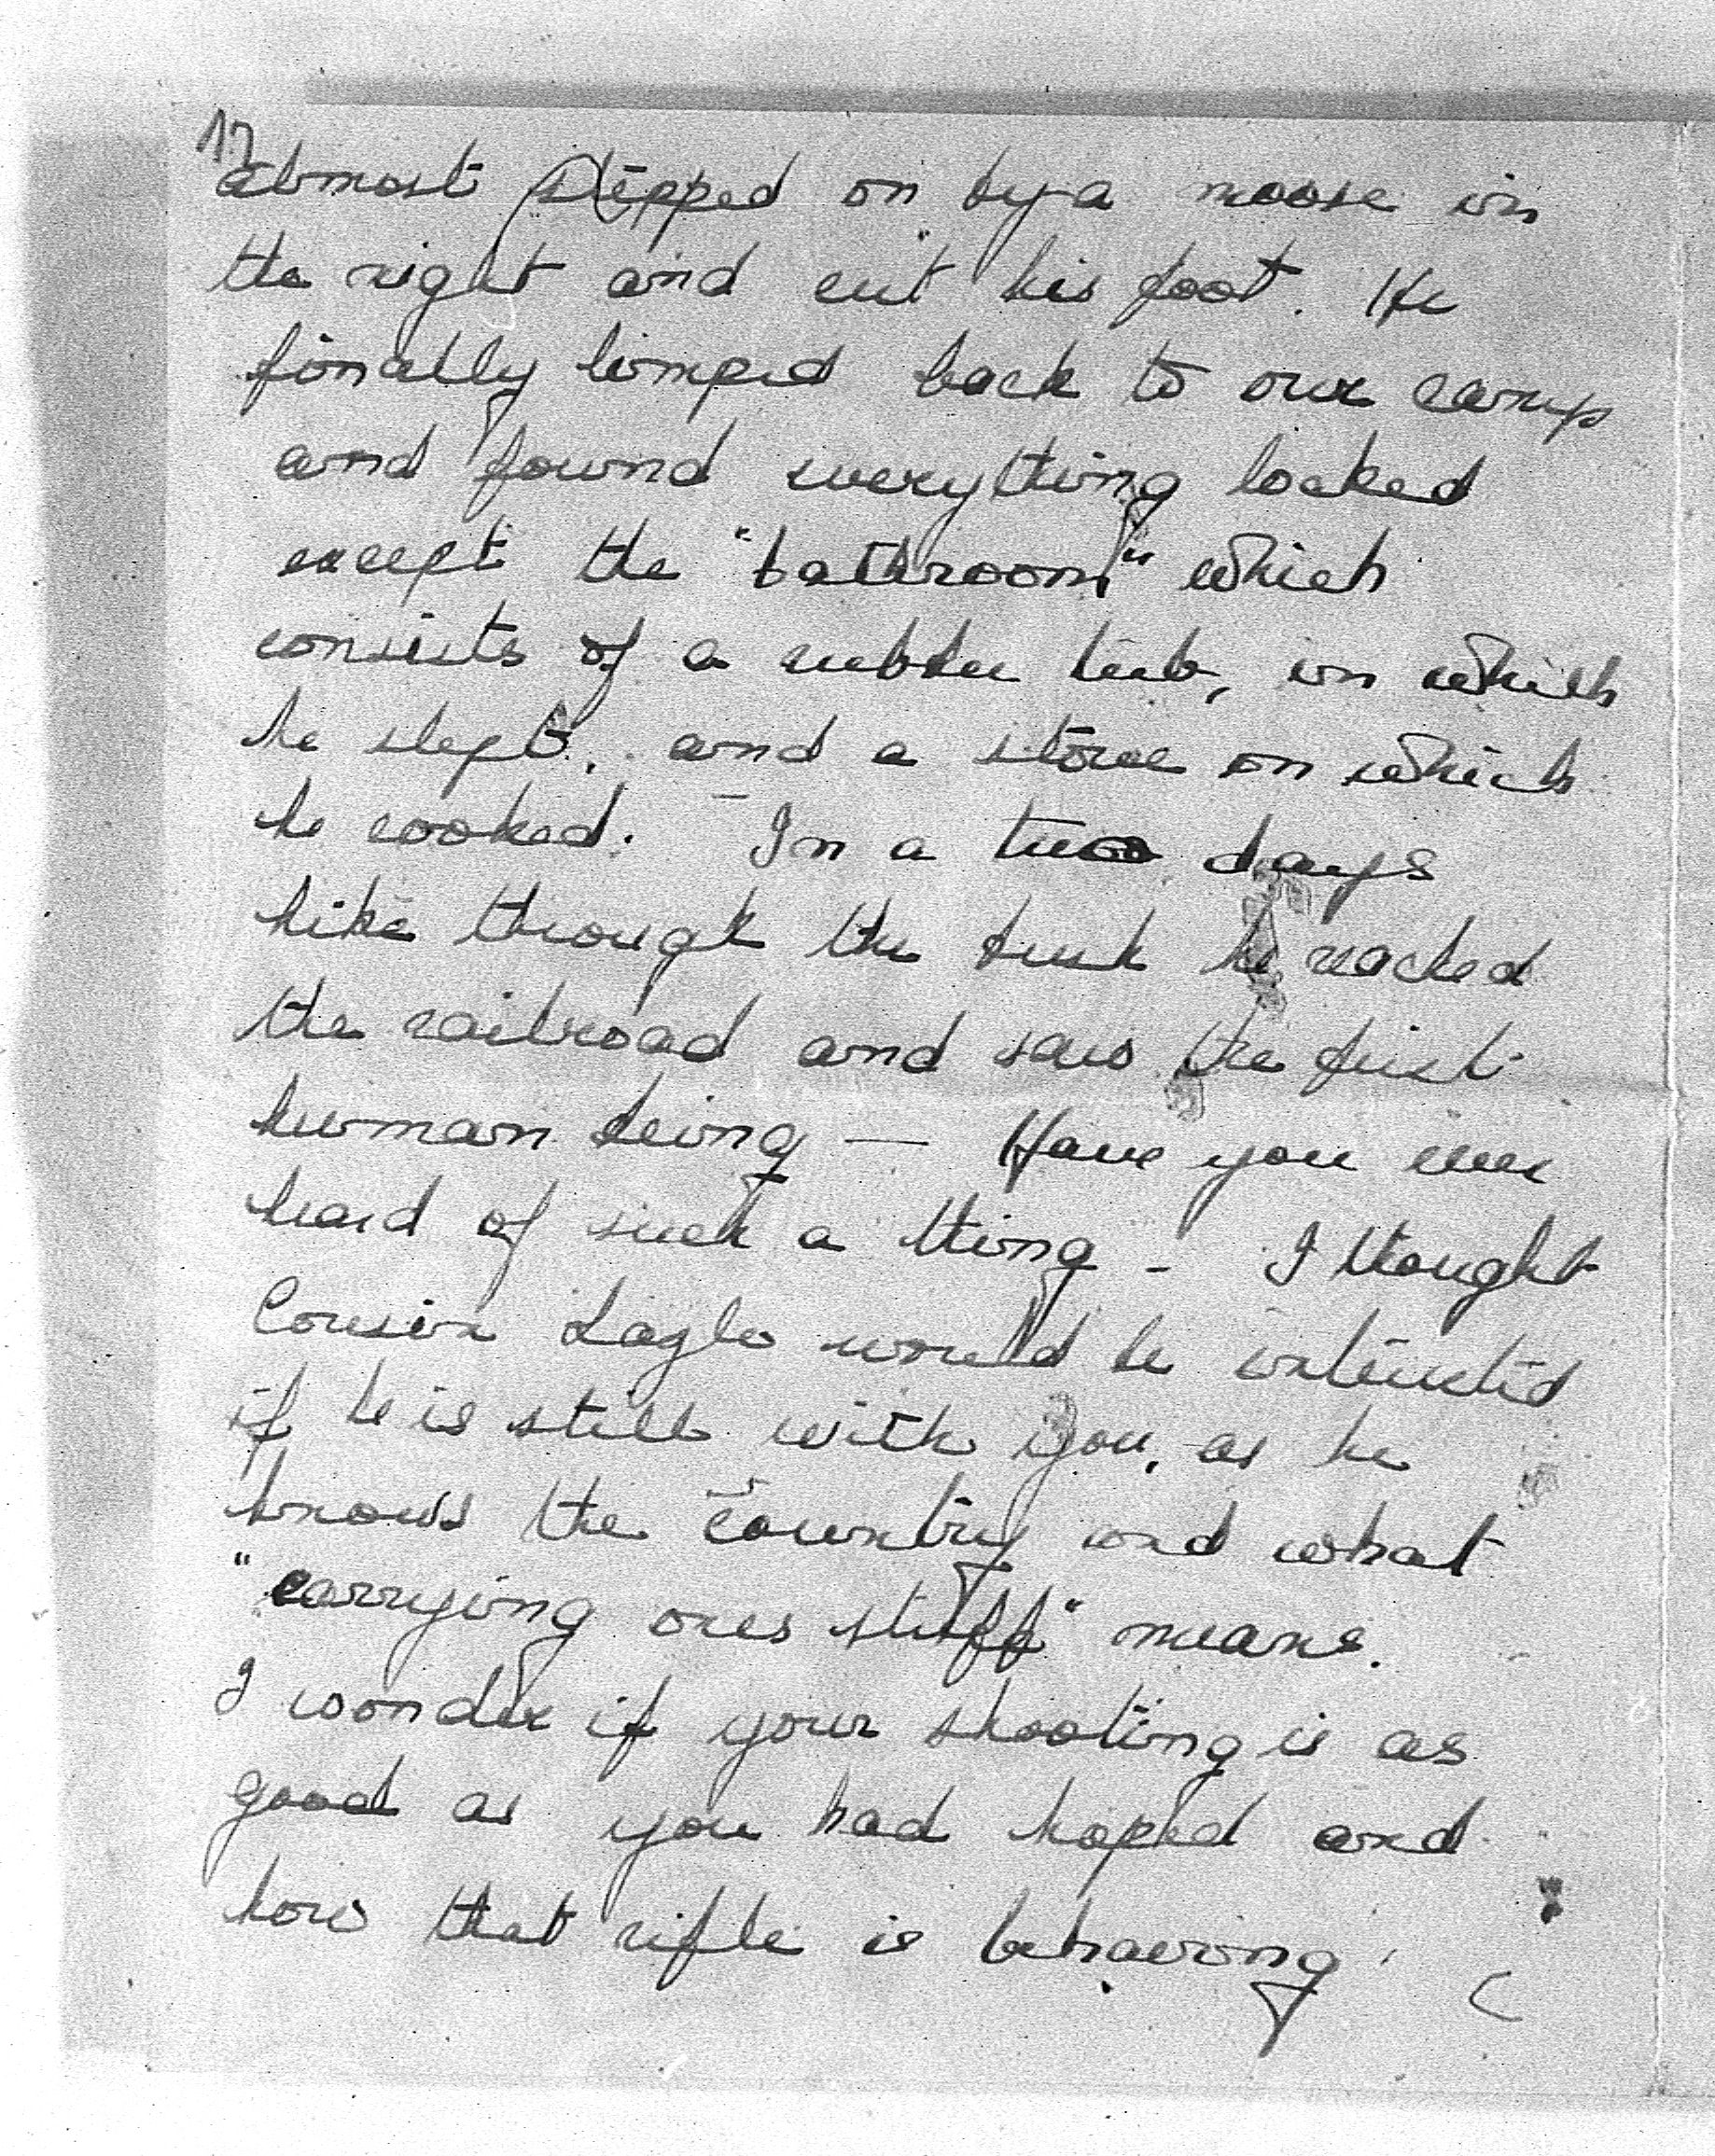 17
almost stepped on by a moose in
the night and cut his foot. He
finally limped back to our camp
and found everything locked
except the "bathroom" which
consists of a rubber tub, in which
he slept, and a stove on which
he cooked. In a two days
hike through the bush he reached
the railroad and saw the first
human being — Have you ever
heard of such a thing - I thought
Cousin would be interested
if he is still with you, as he
knows the country and what
"carrying ones stuff" means.
I wonder if your shooting is as
good as you had hoped and
how that rifle is behaving